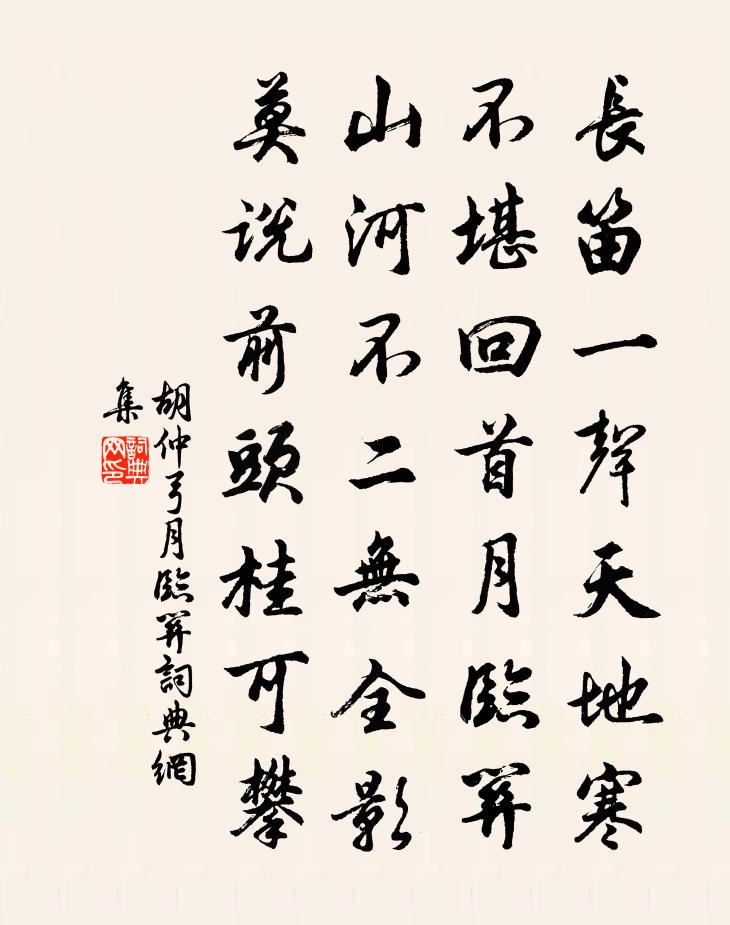 長笛一聲天地寒
不堪回首月臨關
山河不二無全影
莫說前頭桂可攀
胡仲弓月臨關詞典網
集
詞典
网印